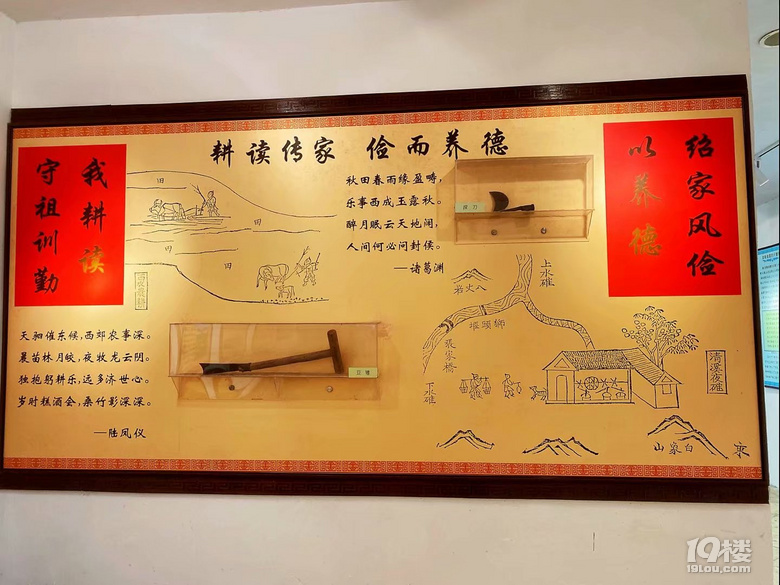 耕读传家 俭而养德
守祖训勤
我耕读
绍家风俭
以养德
秋田春雨缘盈畴，
乐事西成玉露秋。
醉月眠云天地阔，
人间何必问封侯。
——诸葛渊
天驷催东候，西郊农事深。
晨苗林月皎，夜牧龙云阴。
独抱躬耕乐，远多济世心。
岁时糕酒会，桑竹影深深。
——陆凤仪
田
田
田
田
上水碓
張家橋
下水碓
清溪夜碓
山象白
19楼
19lou.com